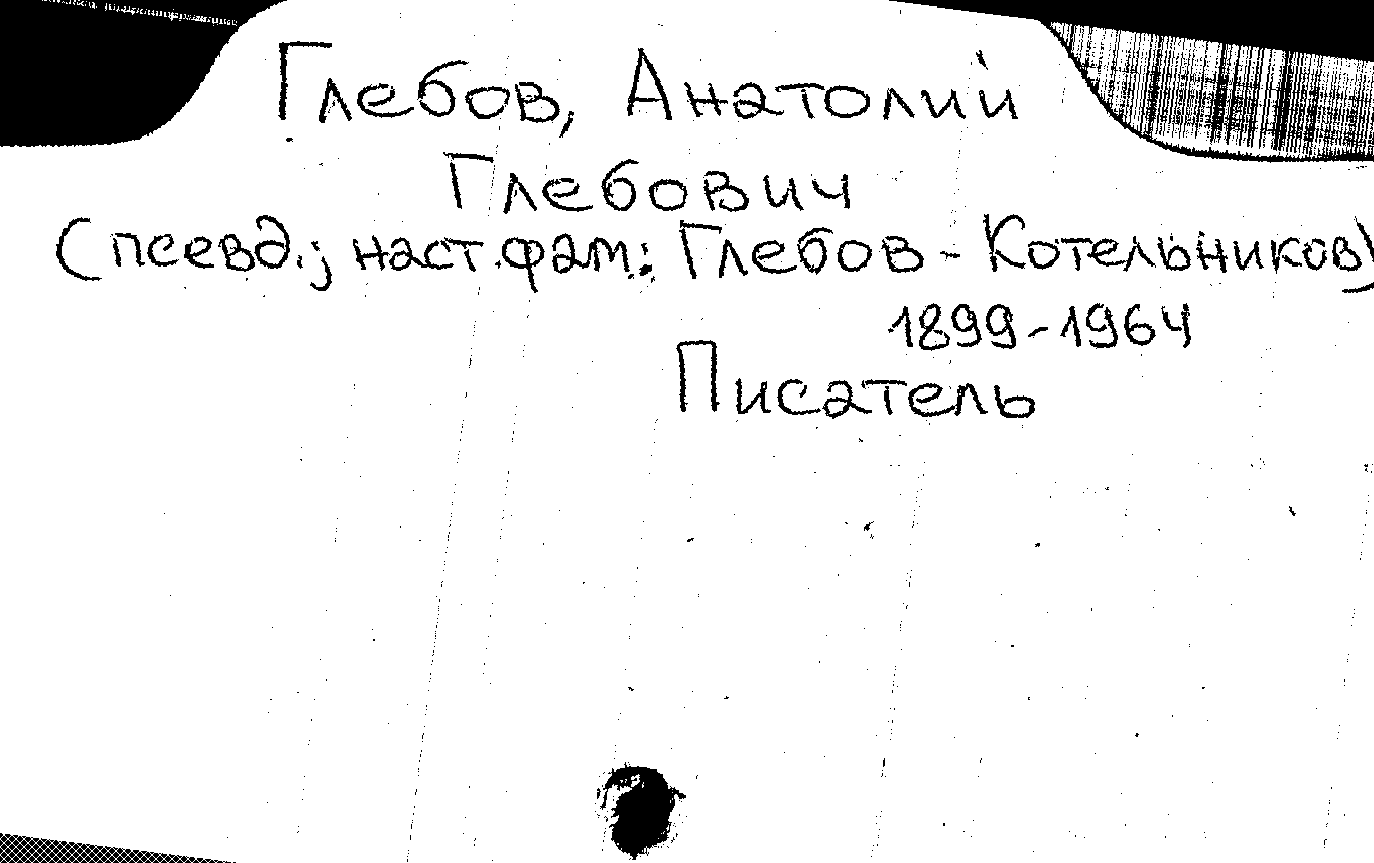 Глебов, Анатолий
Глебович
(псевд.; наст.фам.: Глебов-Котельников)
1899-1964
Писатель